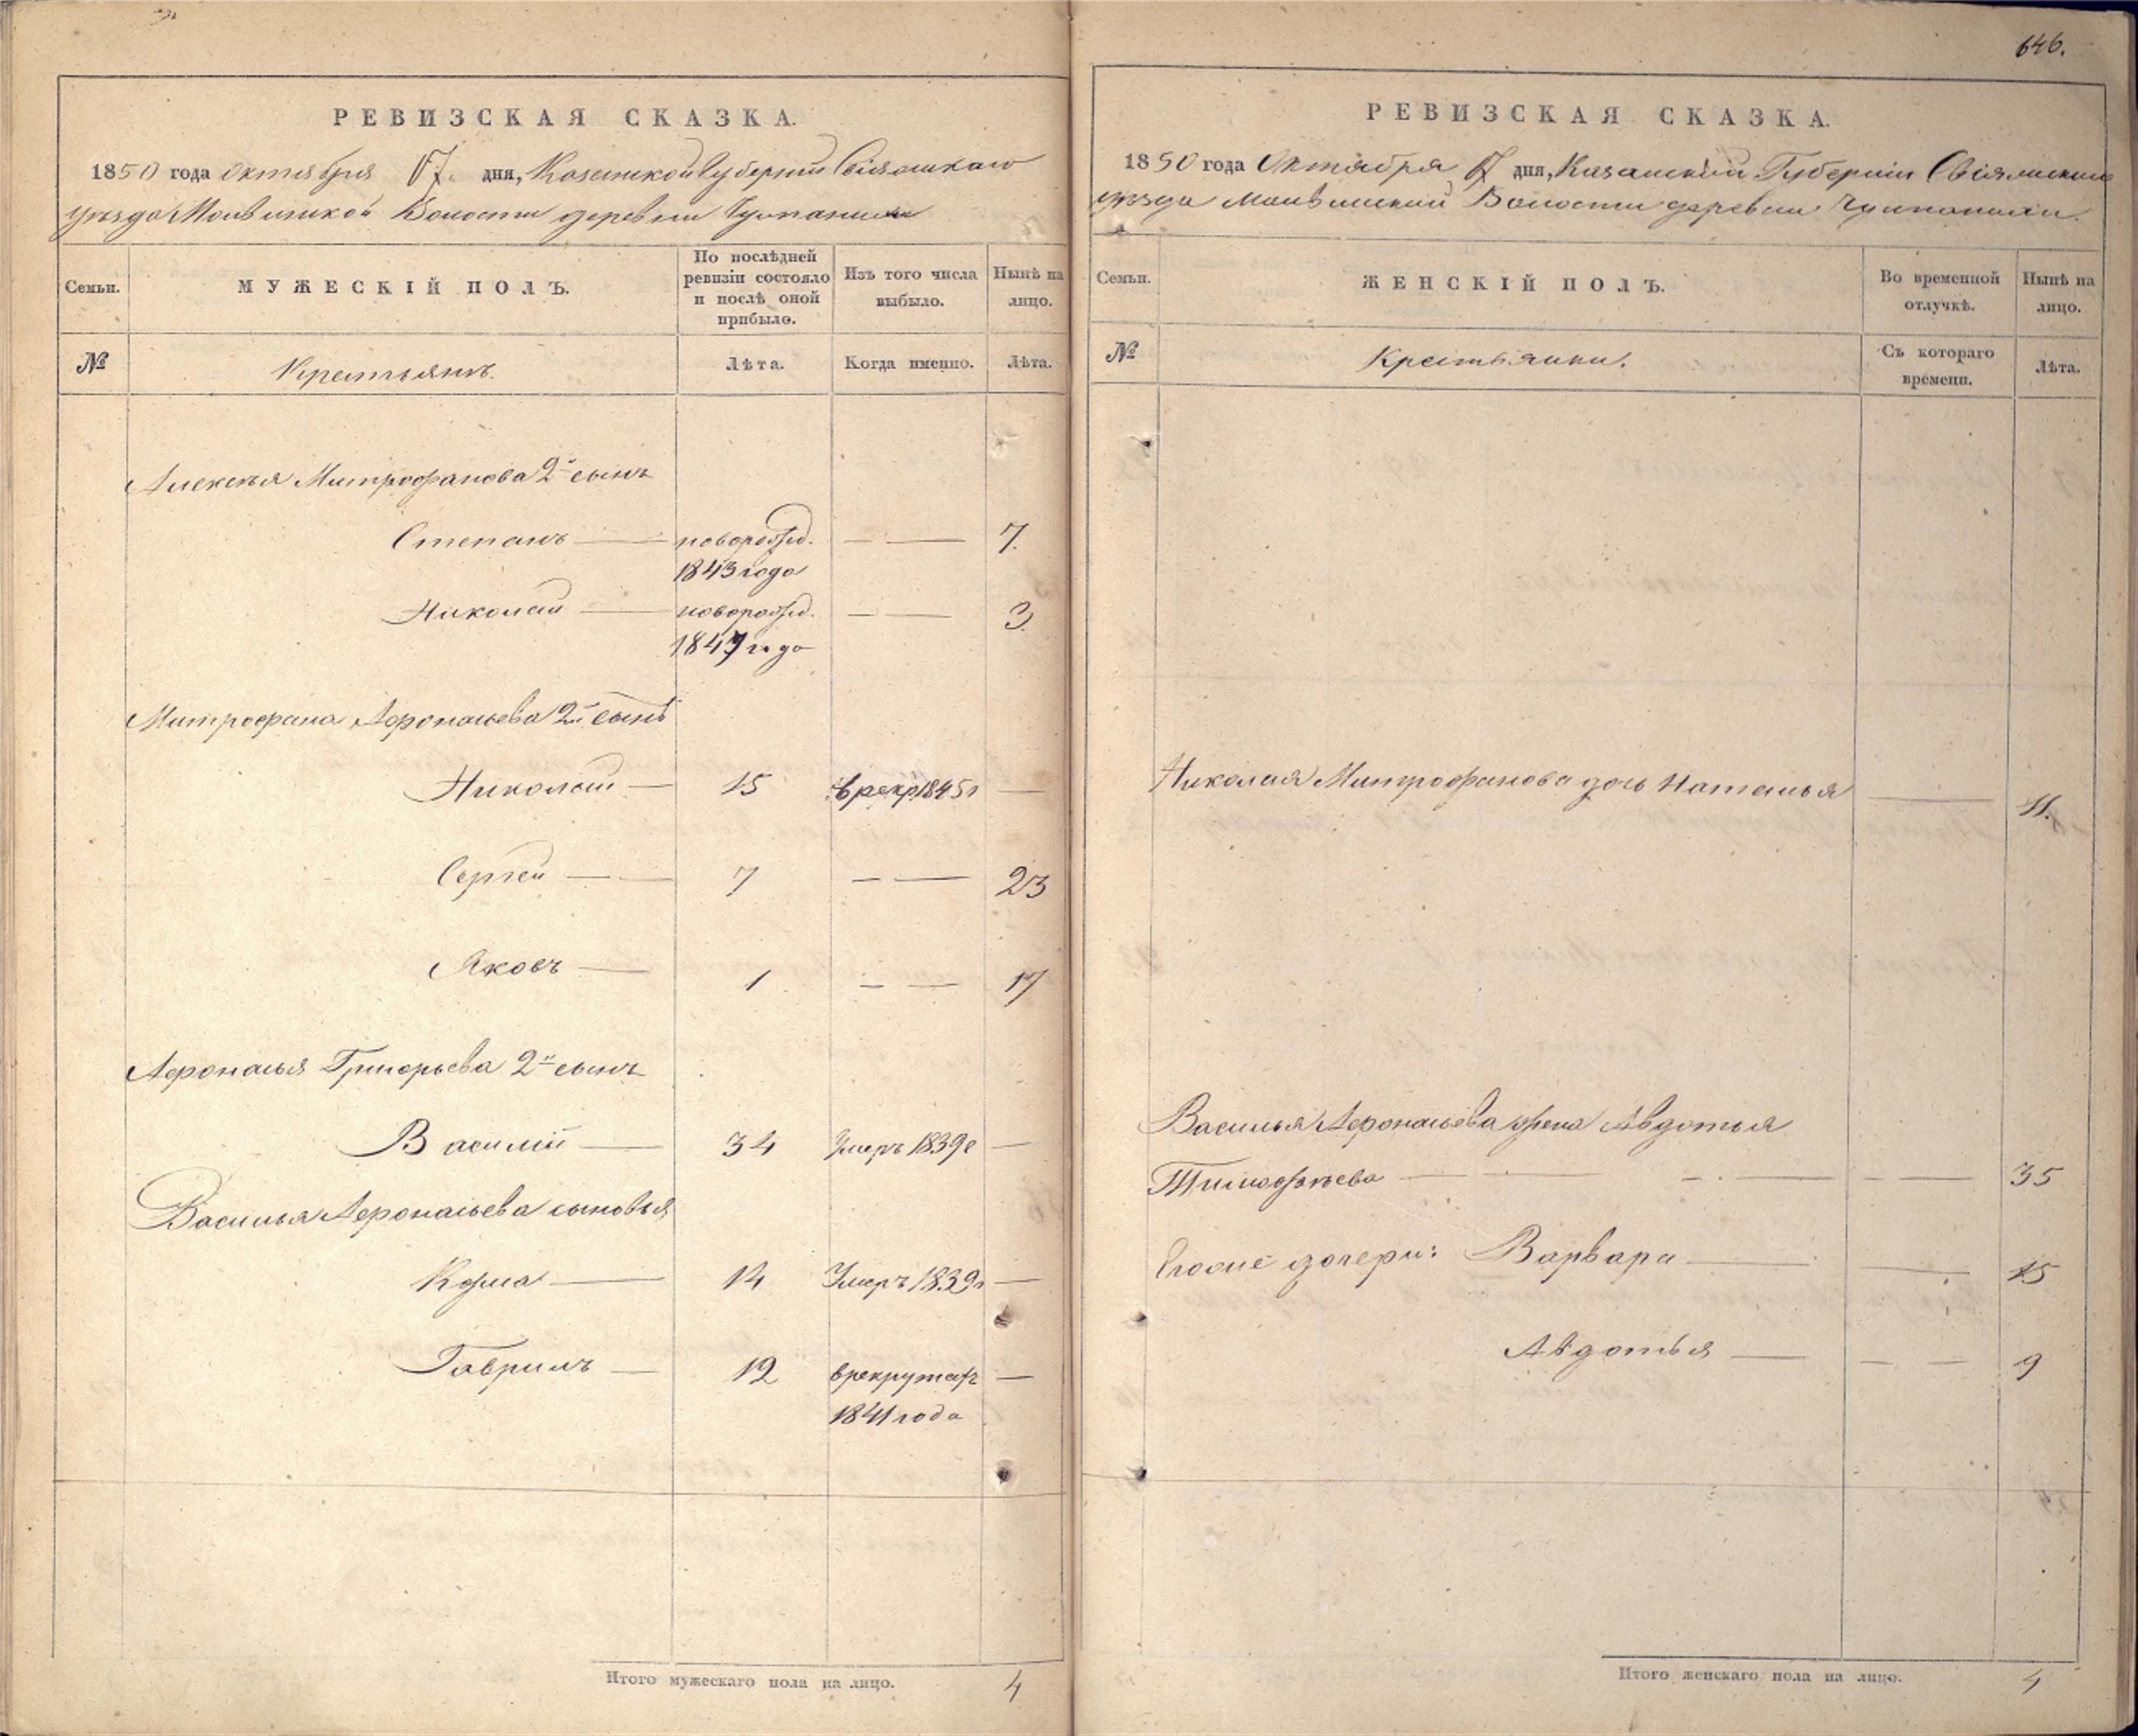 646.
РЕВИЗСКАЯ СКАЗКА.
1850 года Октября 17. дня, Казанской Губернии Свіяжскаго
уѣзда Молвинской Волости деревни
Семьи.
МУЖЕСКІЙ ПОЛЪ.
По послѣдней ревизіи состояло и послѣ оной прибыло.
Изъ того числа выбыло.
Нынѣ на лицо.
№
Крестьянъ.
Лѣта.
Когда именно.
Лѣта.
Алексѣя Митрофанова 2й сынъ
Степанъ — новорожд. — — 7.
1843 года
Николай — новорожд. — — 3
1847 года
Митрофана Афонасьева 2й сынъ
Николай — 15 в рекр 1845 г —
Сергей — 7 — — 23
Яковъ — 1 — — 17
Афонасья Григорьева 2й сынъ
Василій — 34 Умеръ 1839 г —
Василья Афонасьева сыновья
Кузма — 14 Умеръ 1839 г —
Гаврилъ — 12 в рекрутах —
1841 года
Итого мужескаго пола на лицо. 4
РЕВИЗСКАЯ СКАЗКА.
1850 года Октября 17 дня, Казанской Губерніи Свіяжскаго
уѣзда Молвинской Волости деревни
Семьи.
ЖЕНСКІЙ ПОЛЪ.
Во временной отлучкѣ.
Нынѣ на лицо.
№
Крестьянки.
Съ котораго времени.
Лѣта.
Николая Митрофанова дочь Наталья — 11.
Василья Афонасьева жена Авдотья
Тимофѣева — — — — — — 35
дочери: Варвара — — 15
Авдотья — — — 9
Итого женскаго пола на лицо. 4